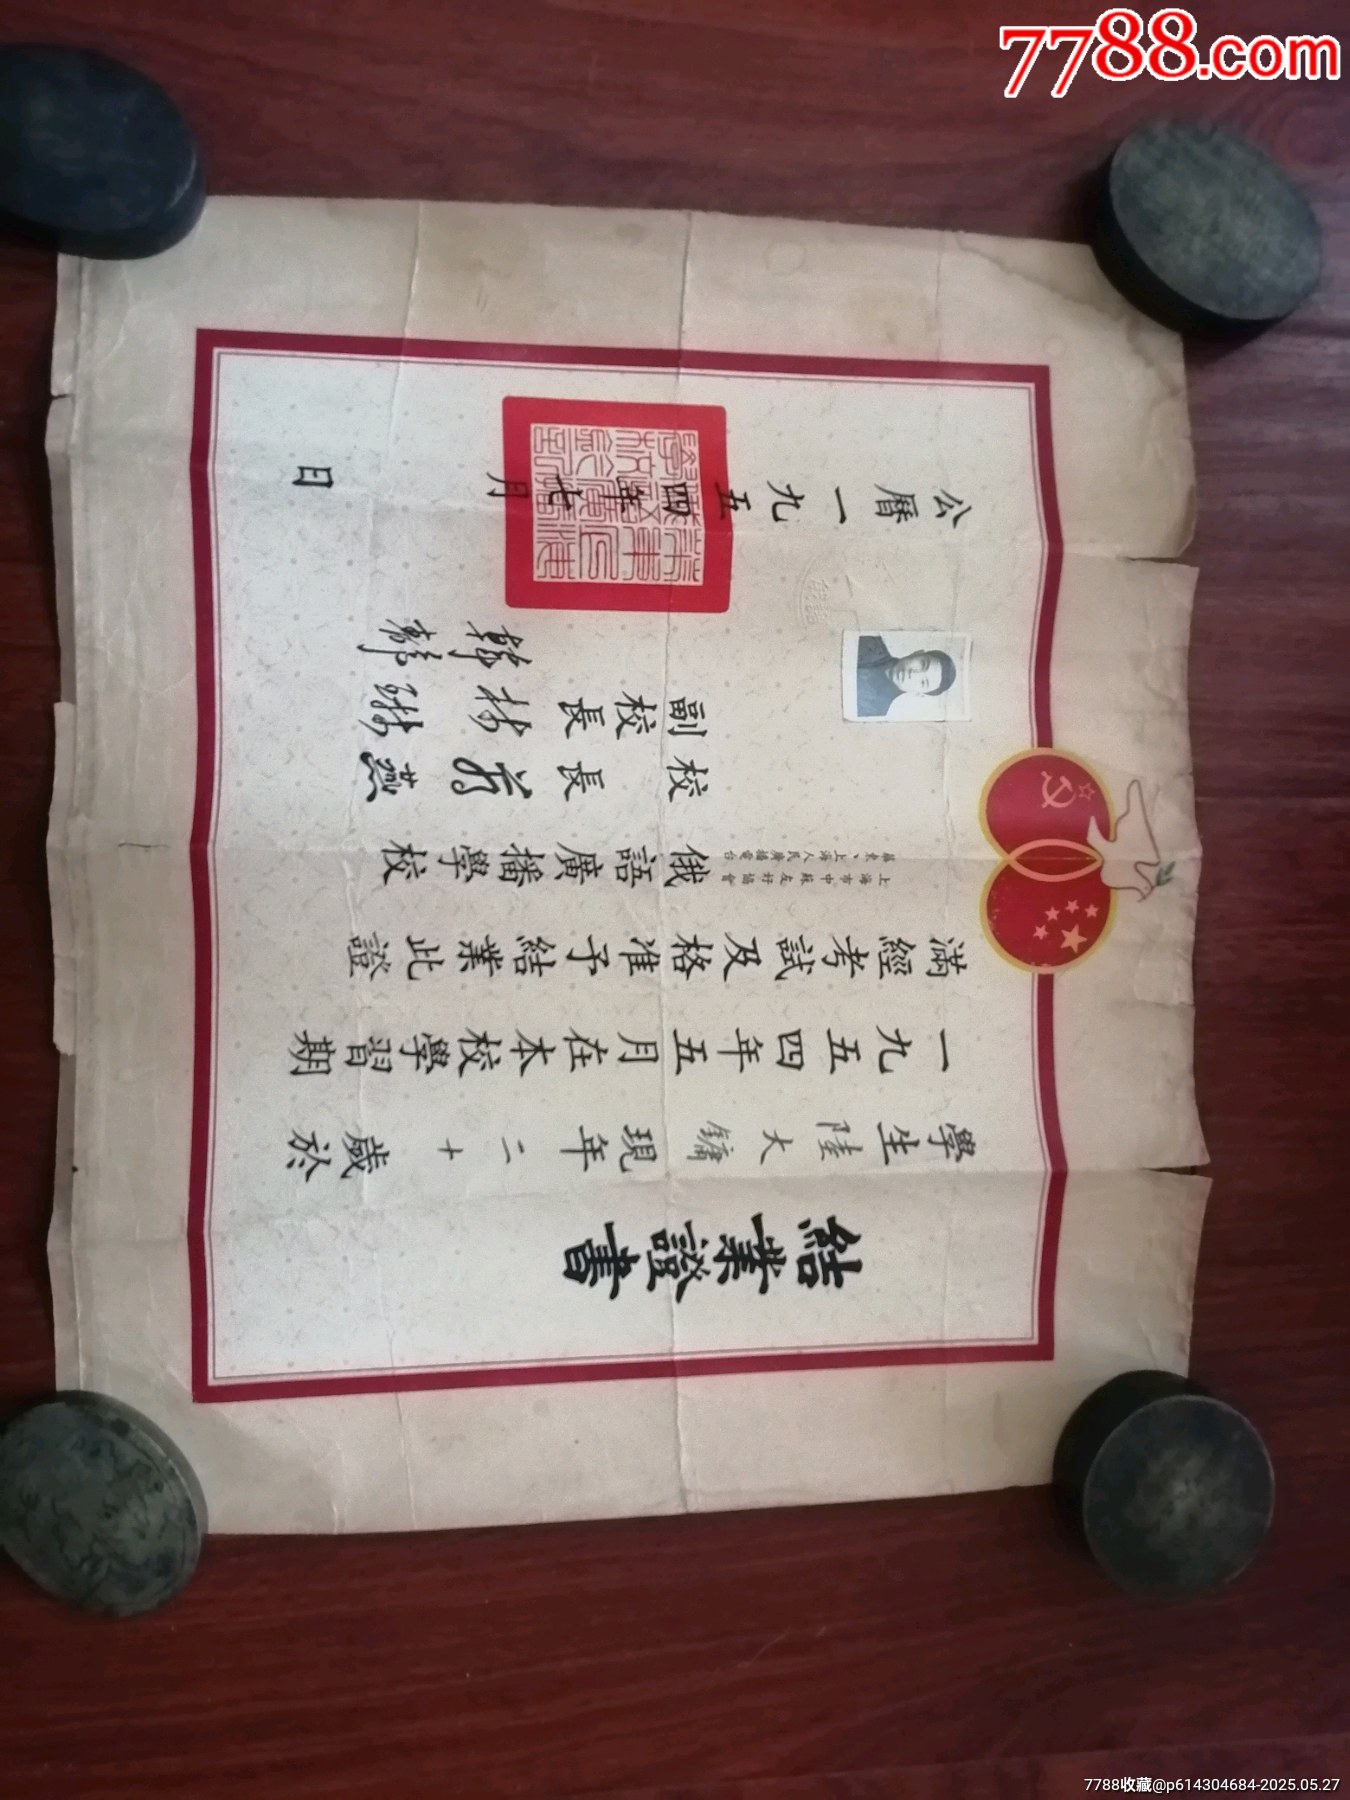 7788.com
結業證書
學生陸大鏞現年二十歲於
一九五四年五月在本校學習期
滿經考試及格准予結業此證
上海市中蘇友好協會
華東、上海人民廣播電台
俄語廣播學校
校長
副校長
公曆一九五四年七月 日
7788收藏@p614304684-2025.05.27